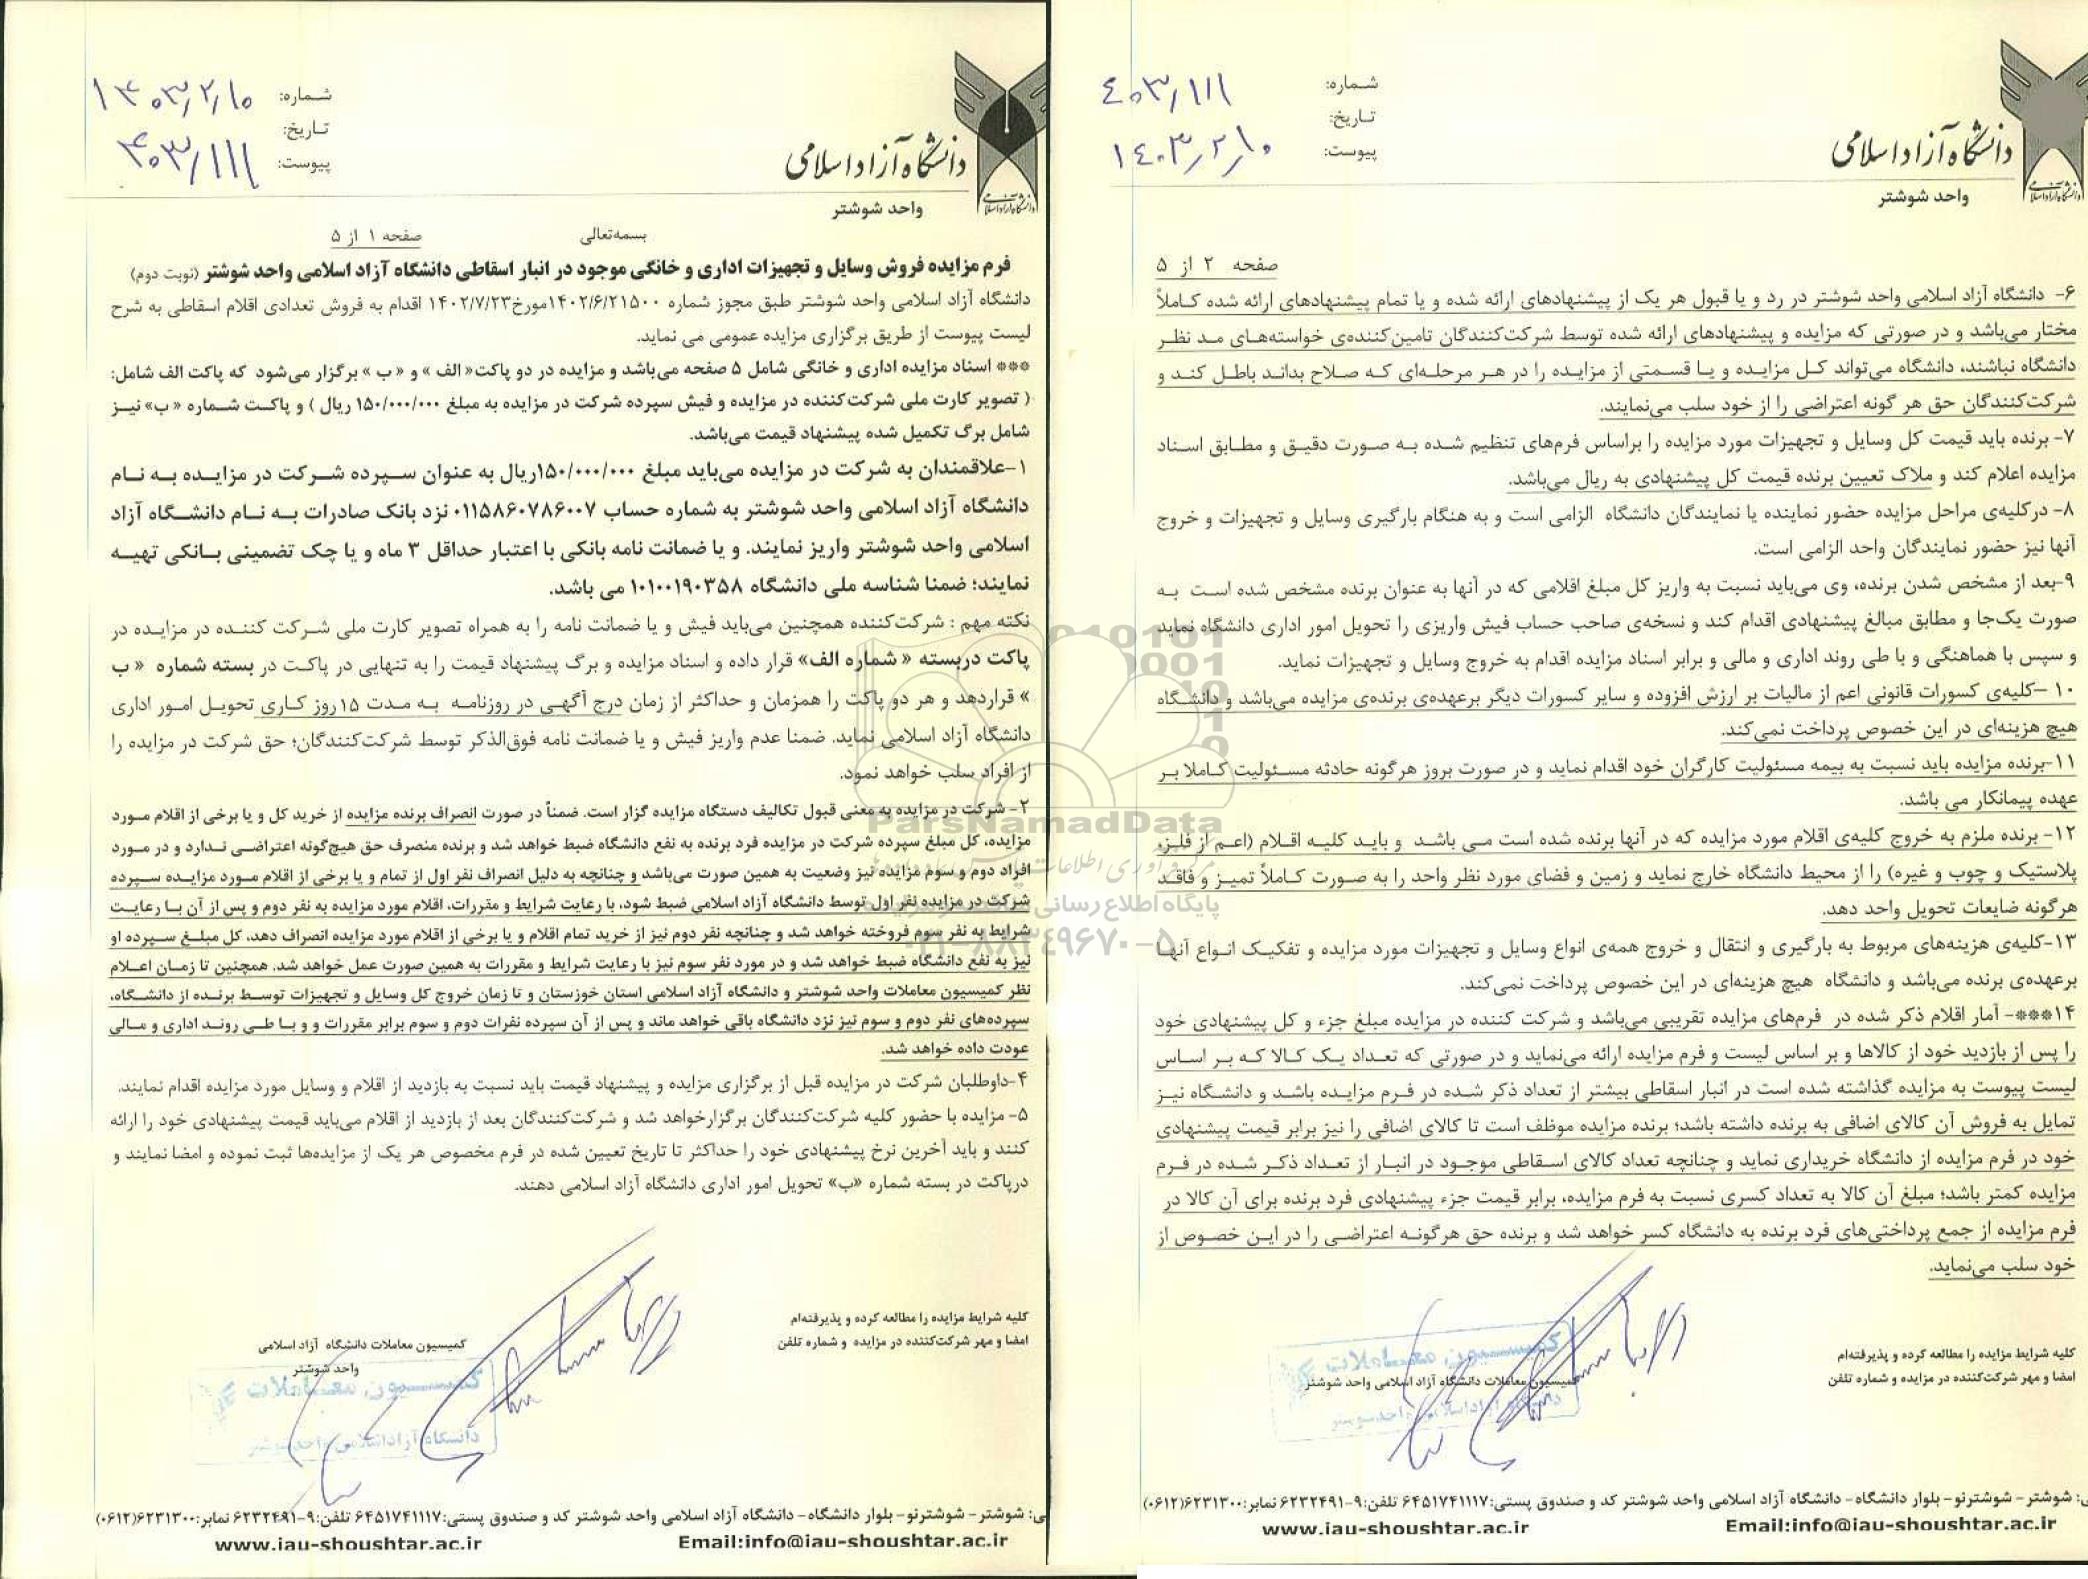 دانشگاه آزاد اسلامی
واحد شوشتر
شماره: ۱۴۰۳/۲/۱۰
تاریخ: ۴۰۳/۱۱۱
پیوست:
بسمه‌تعالی
صفحه ۱ از ۵
فرم مزایده فروش وسایل و تجهیزات اداری و خانگی موجود در انبار اسقاطی دانشگاه آزاد اسلامی واحد شوشتر (نوبت دوم)
دانشگاه آزاد اسلامی واحد شوشتر طبق مجوز شماره ۱۴۰۲/۶/۲۱۵۰۰مورخ۱۴۰۲/۷/۲۳ اقدام به فروش تعدادی اقلام اسقاطی به شرح
لیست پیوست از طریق برگزاری مزایده عمومی می نماید.
*** اسناد مزایده اداری و خانگی شامل ۵ صفحه می‌باشد و مزایده در دو پاکت« الف » و « ب » برگزار می‌شود که پاکت الف شامل:
( تصویر کارت ملی شرکت‌کننده در مزایده و فیش سپرده شرکت در مزایده به مبلغ ۱۵۰/۰۰۰/۰۰۰ ریال ) و پاکت شماره « ب» نیز
شامل برگ تکمیل شده پیشنهاد قیمت می‌باشد.
۱-علاقمندان به شرکت در مزایده می‌باید مبلغ ۱۵۰/۰۰۰/۰۰۰ریال به عنوان سپرده شرکت در مزایده به نام
دانشگاه آزاد اسلامی واحد شوشتر به شماره حساب ۰۱۱۵۸۶۰۷۸۶۰۰۷ نزد بانک صادرات به نام دانشگاه آزاد
اسلامی واحد شوشتر واریز نمایند. و یا ضمانت نامه بانکی با اعتبار حداقل ۳ ماه و یا چک تضمینی بانکی تهیه
نمایند؛ ضمنا شناسه ملی دانشگاه ۱۰۱۰۰۱۹۰۳۵۸ می باشد.
نکته مهم : شرکت‌کننده همچنین می‌باید فیش و یا ضمانت نامه را به همراه تصویر کارت ملی شرکت کننده در مزایده در
پاکت دربسته « شماره الف» قرار داده و اسناد مزایده و برگ پیشنهاد قیمت را به تنهایی در پاکت در بسته شماره « ب
» قراردهد و هر دو پاکت را همزمان و حداکثر از زمان درج آگهی در روزنامه به مدت ۱۵روز کاری تحویل امور اداری
دانشگاه آزاد اسلامی نماید. ضمنا عدم واریز فیش و یا ضمانت نامه فوق‌الذکر توسط شرکت‌کنندگان؛ حق شرکت در مزایده را
از افراد سلب خواهد نمود.
۲- شرکت در مزایده به معنی قبول تکالیف دستگاه مزایده گزار است. ضمناً در صورت انصراف برنده مزایده از خرید کل و یا برخی از اقلام مورد
مزایده، کل مبلغ سپرده شرکت در مزایده فرد برنده به نفع دانشگاه ضبط خواهد شد و برنده منصرف حق هیچ‌گونه اعتراضی ندارد و در مورد
افراد دوم و سوم مزایده نیز وضعیت به همین صورت می‌باشد و چنانچه به دلیل انصراف نفر اول از تمام و یا برخی از اقلام مورد مزایده سپرده
شرکت در مزایده نفر اول توسط دانشگاه آزاد اسلامی ضبط شود، با رعایت شرایط و مقررات، اقلام مورد مزایده به نفر دوم و پس از آن با رعایت
شرایط به نفر سوم فروخته خواهد شد و چنانچه نفر دوم نیز از خرید تمام اقلام و یا برخی از اقلام مورد مزایده انصراف دهد، کل مبلغ سپرده او
نیز به نفع دانشگاه ضبط خواهد شد و در مورد نفر سوم نیز با رعایت شرایط و مقررات به همین صورت عمل خواهد شد. همچنین تا زمان اعلام
نظر کمیسیون معاملات واحد شوشتر و دانشگاه آزاد اسلامی استان خوزستان و تا زمان خروج کل وسایل و تجهیزات توسط برنده از دانشگاه،
سپرده‌های نفر دوم و سوم نیز نزد دانشگاه باقی خواهد ماند و پس از آن سپرده نفرات دوم و سوم برابر مقررات و و با طی روند اداری و مالی
عودت داده خواهد شد.
۴-داوطلبان شرکت در مزایده قبل از برگزاری مزایده و پیشنهاد قیمت باید نسبت به بازدید از اقلام و وسایل مورد مزایده اقدام نمایند.
۵- مزایده با حضور کلیه شرکت‌کنندگان برگزارخواهد شد و شرکت‌کنندگان بعد از بازدید از اقلام می‌باید قیمت پیشنهادی خود را ارائه
کنند و باید آخرین نرخ پیشنهادی خود را حداکثر تا تاریخ تعیین شده در فرم مخصوص هر یک از مزایده‌ها ثبت نموده و امضا نمایند و
درپاکت در بسته شماره «ب» تحویل امور اداری دانشگاه آزاد اسلامی دهند.
کلیه شرایط مزایده را مطالعه کرده و پذیرفته‌ام
امضا و مهر شرکت‌کننده در مزایده و شماره تلفن
کمیسیون معاملات دانشگاه آزاد اسلامی
واحد شوشتر
کمیسیون معاملات
دانشگاه آزاد اسلامی واحد شوشتر
ی: شوشتر- شوشترنو- بلوار دانشگاه- دانشگاه آزاد اسلامی واحد شوشتر کد و صندوق پستی:۶۴۵۱۷۴۱۱۱۷ تلفن:۹-۶۲۳۲۴۹۱ نمابر:۶۲۳۱۳۰۰(۰۶۱۲)
www.iau-shoushtar.ac.ir
Email:info@iau-shoushtar.ac.ir
دانشگاه آزاد اسلامی
واحد شوشتر
شماره: ۴۰۳/۱۱۱
تاریخ: ۱۴۰۳/۲/۱۰
پیوست:
صفحه ۲ از ۵
۶- دانشگاه آزاد اسلامی واحد شوشتر در رد و یا قبول هر یک از پیشنهادهای ارائه شده و یا تمام پیشنهادهای ارائه شده کاملاً
مختار می‌باشد و در صورتی که مزایده و پیشنهادهای ارائه شده توسط شرکت‌کنندگان تامین‌کننده‌ی خواسته‌های مد نظر
دانشگاه نباشند، دانشگاه می‌تواند کل مزایده و یا قسمتی از مزایده را در هر مرحله‌ای که صلاح بداند باطل کند و
شرکت‌کنندگان حق هر گونه اعتراضی را از خود سلب می‌نمایند.
۷- برنده باید قیمت کل وسایل و تجهیزات مورد مزایده را براساس فرم‌های تنظیم شده به صورت دقیق و مطابق اسناد
مزایده اعلام کند و ملاک تعیین برنده قیمت کل پیشنهادی به ریال می‌باشد.
۸- درکلیه‌ی مراحل مزایده حضور نماینده یا نمایندگان دانشگاه الزامی است و به هنگام بارگیری وسایل و تجهیزات و خروج
آنها نیز حضور نمایندگان واحد الزامی است.
۹-بعد از مشخص شدن برنده، وی می‌باید نسبت به واریز کل مبلغ اقلامی که در آنها به عنوان برنده مشخص شده است به
صورت یک‌جا و مطابق مبالغ پیشنهادی اقدام کند و نسخه‌ی صاحب حساب فیش واریزی را تحویل امور اداری دانشگاه نماید
و سپس با هماهنگی و با طی روند اداری و مالی و برابر اسناد مزایده اقدام به خروج وسایل و تجهیزات نماید.
۱۰ -کلیه‌ی کسورات قانونی اعم از مالیات بر ارزش افزوده و سایر کسورات دیگر برعهده‌ی برنده‌ی مزایده می‌باشد و دانشگاه
هیچ هزینه‌ای در این خصوص پرداخت نمی‌کند.
۱۱-برنده مزایده باید نسبت به بیمه مسئولیت کارگران خود اقدام نماید و در صورت بروز هرگونه حادثه مسئولیت کاملا بر
عهده پیمانکار می باشد.
۱۲- برنده ملزم به خروج کلیه‌ی اقلام مورد مزایده که در آنها برنده شده است می باشد و باید کلیه اقلام (اعم از فلز،
پلاستیک و چوب و غیره) را از محیط دانشگاه خارج نماید و زمین و فضای مورد نظر واحد را به صورت کاملاً تمیز و فاقد
هرگونه ضایعات تحویل واحد دهد.
۱۳-کلیه‌ی هزینه‌های مربوط به بارگیری و انتقال و خروج همه‌ی انواع وسایل و تجهیزات مورد مزایده و تفکیک انواع آنها
برعهده‌ی برنده می‌باشد و دانشگاه هیچ هزینه‌ای در این خصوص پرداخت نمی‌کند.
۱۴***- آمار اقلام ذکر شده در فرم‌های مزایده تقریبی می‌باشد و شرکت کننده در مزایده مبلغ جزء و کل پیشنهادی خود
را پس از بازدید خود از کالاها و بر اساس لیست و فرم مزایده ارائه می‌نماید و در صورتی که تعداد یک کالا که بر اساس
لیست پیوست به مزایده گذاشته شده است در انبار اسقاطی بیشتر از تعداد ذکر شده در فرم مزایده باشد و دانشگاه نیز
تمایل به فروش آن کالای اضافی به برنده داشته باشد؛ برنده مزایده موظف است تا کالای اضافی را نیز برابر قیمت پیشنهادی
خود در فرم مزایده از دانشگاه خریداری نماید و چنانچه تعداد کالای اسقاطی موجود در انبار از تعداد ذکر شده در فرم
مزایده کمتر باشد؛ مبلغ آن کالا به تعداد کسری نسبت به فرم مزایده، برابر قیمت جزء پیشنهادی فرد برنده برای آن کالا در
فرم مزایده از جمع پرداختی‌های فرد برنده به دانشگاه کسر خواهد شد و برنده حق هرگونه اعتراضی را در این خصوص از
خود سلب می‌نماید.
کلیه شرایط مزایده را مطالعه کرده و پذیرفته‌ام
امضا و مهر شرکت‌کننده در مزایده و شماره تلفن
کمیسیون معاملات
کمیسیون معاملات دانشگاه آزاد اسلامی واحد شوشتر
ی: شوشتر- شوشترنو- بلوار دانشگاه- دانشگاه آزاد اسلامی واحد شوشتر کد و صندوق پستی:۶۴۵۱۷۴۱۱۱۷ تلفن:۹-۶۲۳۲۴۹۱ نمابر:۶۲۳۱۳۰۰(۰۶۱۲)
www.iau-shoushtar.ac.ir
Email:info@iau-shoushtar.ac.ir
ParsNamadData
۰۲۱-۸۸۳۴۹۶۷۰-۵